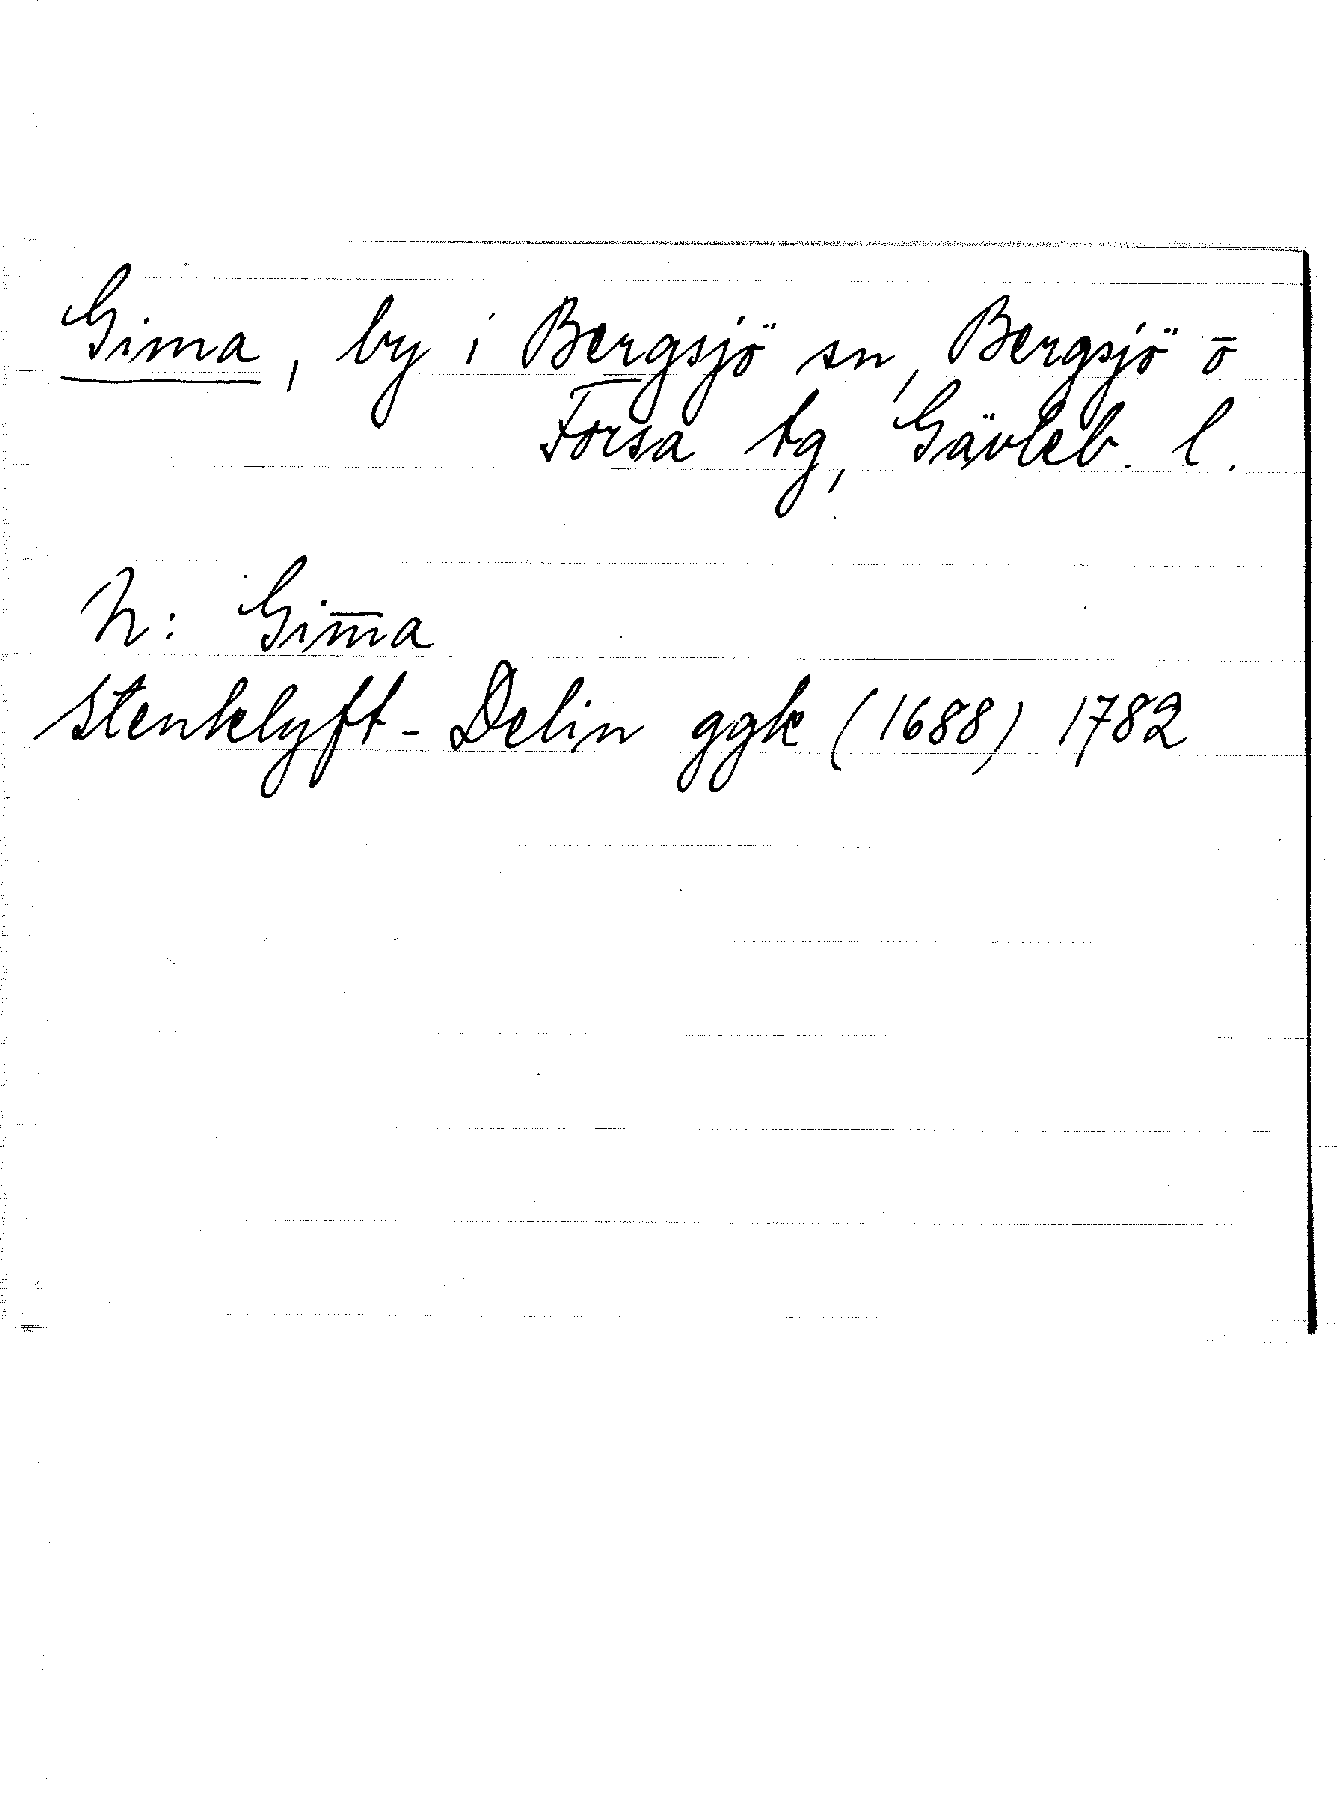 Gima, by i Bergsjö sn, Bergsjö o
Forsa tg, Gävleb. l.
N: Gim̅a
Stenklyft - Delin ggk (1688) 1782